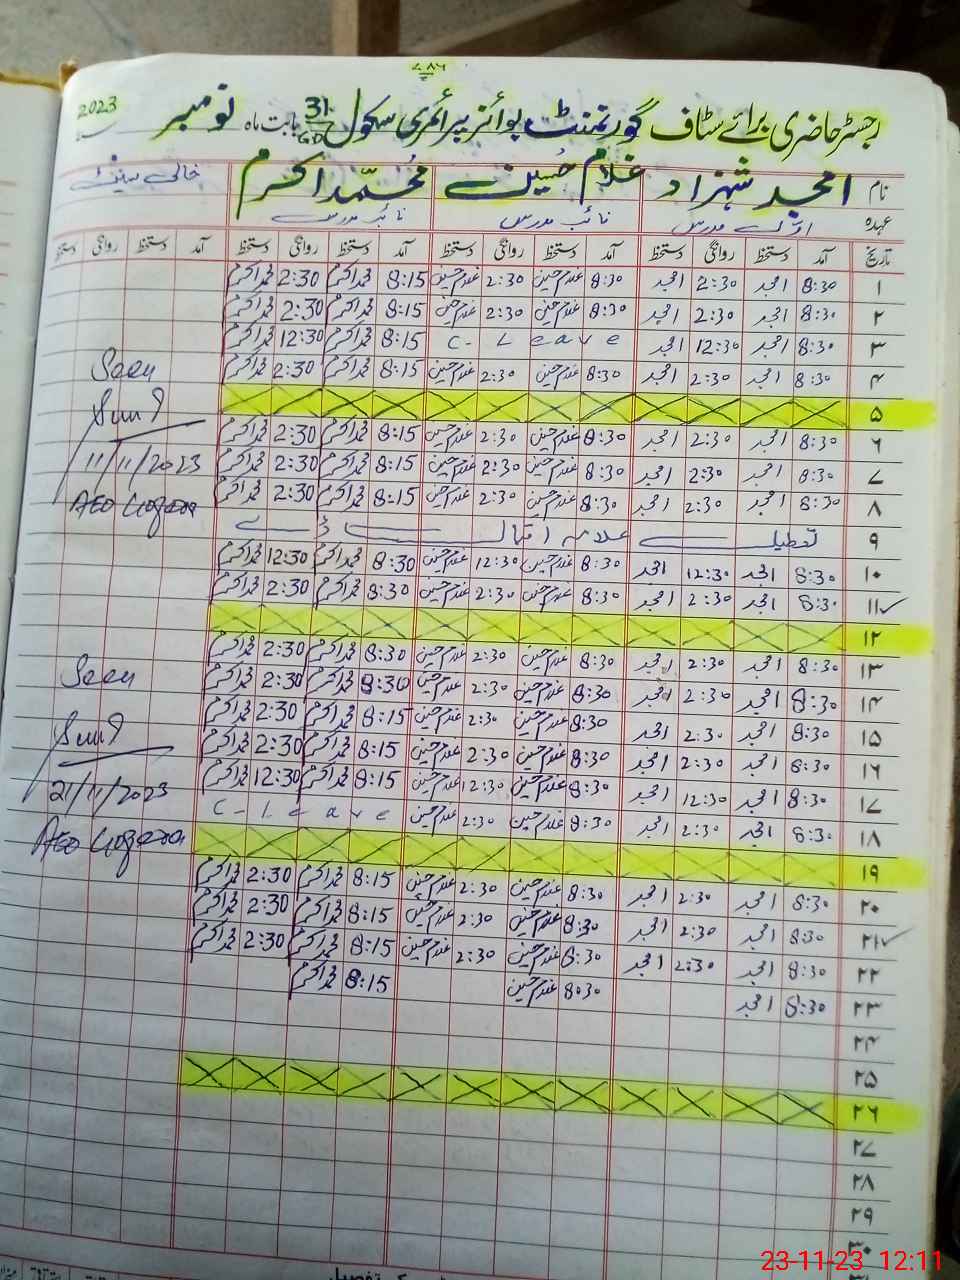 ۷۸۶
رجسٹر حاضری برائے سٹاف گورنمنٹ بوائز پرائمری سکول 31/GD بابت ماہ نومبر 2023
نام امجد شہزاد غلام حسین محمد اکرم خالی سیٹ
عہدہ مدرس نائب مدرس نائب مدرس
تاریخ آمد دستخط روانگی دستخط آمد دستخط روانگی دستخط آمد دستخط روانگی دستخط آمد دستخط روانگی دستخط
۱ 8:30 امجد 2:30 امجد 8:30 غلام حسین 2:30 غلام حسین 8:15 محمد اکرم 2:30 محمد اکرم
۲ 8:30 امجد 2:30 امجد 8:30 غلام حسین 2:30 غلام حسین 8:15 محمد اکرم 2:30 محمد اکرم
۳ 8:30 امجد 12:30 امجد C-Leave 8:15 محمد اکرم 12:30 محمد اکرم
۴ 8:30 امجد 2:30 امجد 8:30 غلام حسین 2:30 غلام حسین 8:15 محمد اکرم 2:30 محمد اکرم
Seen
۵
۶ 8:30 امجد 2:30 امجد 8:30 غلام حسین 2:30 غلام حسین 8:15 محمد اکرم 2:30 محمد اکرم
۷ 8:30 امجد 2:30 امجد 8:30 غلام حسین 2:30 غلام حسین 8:15 محمد اکرم 2:30 محمد اکرم
11/11/2023
۸ 8:30 امجد 2:30 امجد 8:30 غلام حسین 2:30 غلام حسین 8:15 محمد اکرم 2:30 محمد اکرم
AEO
۹ تعطیل علامہ اقبال ڈے
۱۰ 8:30 امجد 12:30 امجد 8:30 غلام حسین 12:30 غلام حسین 8:30 محمد اکرم 12:30 محمد اکرم
۱۱ 8:30 امجد 2:30 امجد 8:30 غلام حسین 2:30 غلام حسین 8:30 محمد اکرم 2:30 محمد اکرم
۱۲
۱۳ 8:30 امجد 2:30 امجد 8:30 غلام حسین 2:30 غلام حسین 8:30 محمد اکرم 2:30 محمد اکرم
۱۴ 8:30 امجد 2:30 امجد 8:30 غلام حسین 2:30 غلام حسین 8:30 محمد اکرم 2:30 محمد اکرم
Seen
۱۵ 8:30 امجد 2:30 امجد 8:30 غلام حسین 2:30 غلام حسین 8:15 محمد اکرم 2:30 محمد اکرم
۱۶ 8:30 امجد 2:30 امجد 8:30 غلام حسین 2:30 غلام حسین 8:15 محمد اکرم 2:30 محمد اکرم
۱۷ 8:30 امجد 12:30 امجد 8:30 غلام حسین 12:30 غلام حسین 8:15 محمد اکرم 12:30 محمد اکرم
21/11/2023
۱۸ 8:30 امجد 2:30 امجد 8:30 غلام حسین 2:30 غلام حسین C-Leave
AEO
۱۹
۲۰ 8:30 امجد 2:30 امجد 8:30 غلام حسین 2:30 غلام حسین 8:15 محمد اکرم 2:30 محمد اکرم
۲۱ 8:30 امجد 2:30 امجد 8:30 غلام حسین 2:30 غلام حسین 8:15 محمد اکرم 2:30 محمد اکرم
۲۲ 8:30 امجد 2:30 امجد 8:30 غلام حسین 2:30 غلام حسین 8:15 محمد اکرم 2:30 محمد اکرم
۲۳ 8:30 امجد 8:30 غلام حسین 8:15 محمد اکرم
۲۴
۲۵
۲۶
۲۷
۲۸
۲۹
۳۰
23-11-23 12:11